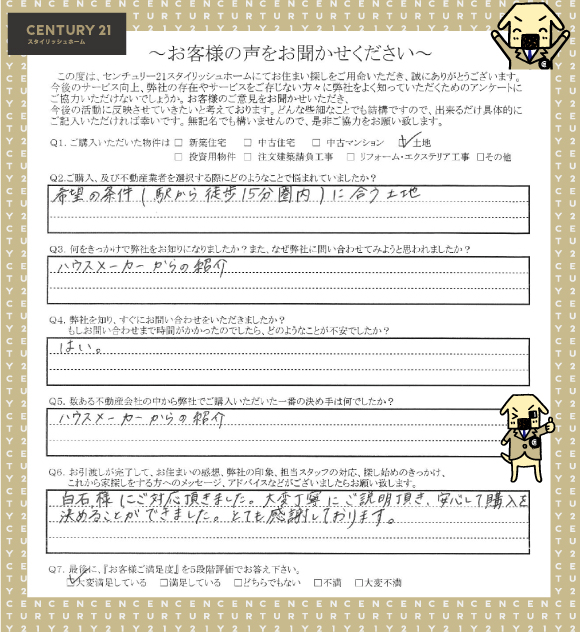 CENTURY 21
スタイリッシュホーム
～お客様の声をお聞かせください～
この度は、センチュリー21スタイリッシュホームにてお住まい探しをご用命いただき、誠にありがとうございます。
今後のサービス向上、弊社の存在やサービスをご存じない方々に弊社をよく知っていただくためのアンケートに
ご協力いただけないでしょうか。お客様のご意見をお聞かせいただき、
今後の活動に反映させていきたいと考えております。どんな些細なことでも結構ですので、出来るだけ具体的に
ご記入いただければ幸いです。無記名でも構いませんので、是非ご協力をお願い致します。
Q1. ご購入いただいた物件は □ 新築住宅 □ 中古住宅 □ 中古マンション ☑土地
□ 投資用物件 □ 注文建築請負工事 □ リフォーム・エクステリア工事 □その他
Q2.ご購入、及び不動産業者を選択する際にどのようなことで悩まれていましたか?
希望の条件(駅から徒歩15分圏内)に合う土地
Q3. 何をきっかけで弊社をお知りになりましたか?また、なぜ弊社に問い合わせてみようと思われましたか?
ハウスメーカーからの紹介
Q4. 弊社を知り、すぐにお問い合わせをいただきましたか?
もしお問い合わせまで時間がかかったのでしたら、どのようなことが不安でしたか?
はい。
Q5. 数ある不動産会社の中から弊社でご購入いただいた一番の決め手は何でしたか?
ハウスメーカーからの紹介
Q6. お引渡しが完了して、お住まいの感想、弊社の印象、担当スタッフの対応、探し始めのきっかけ、
これから家探しをする方へのメッセージ、アドバイスなどがございましたらお願い致します。
白石様にご対応頂きました。大変丁寧にご説明頂き、安心して購入を
決めることができました。とても感謝しております。
Q7. 最後に、『お客様ご満足度』を5段階評価でお答え下さい。
☑大変満足している □満足している □どちらでもない □不満 □大変不満